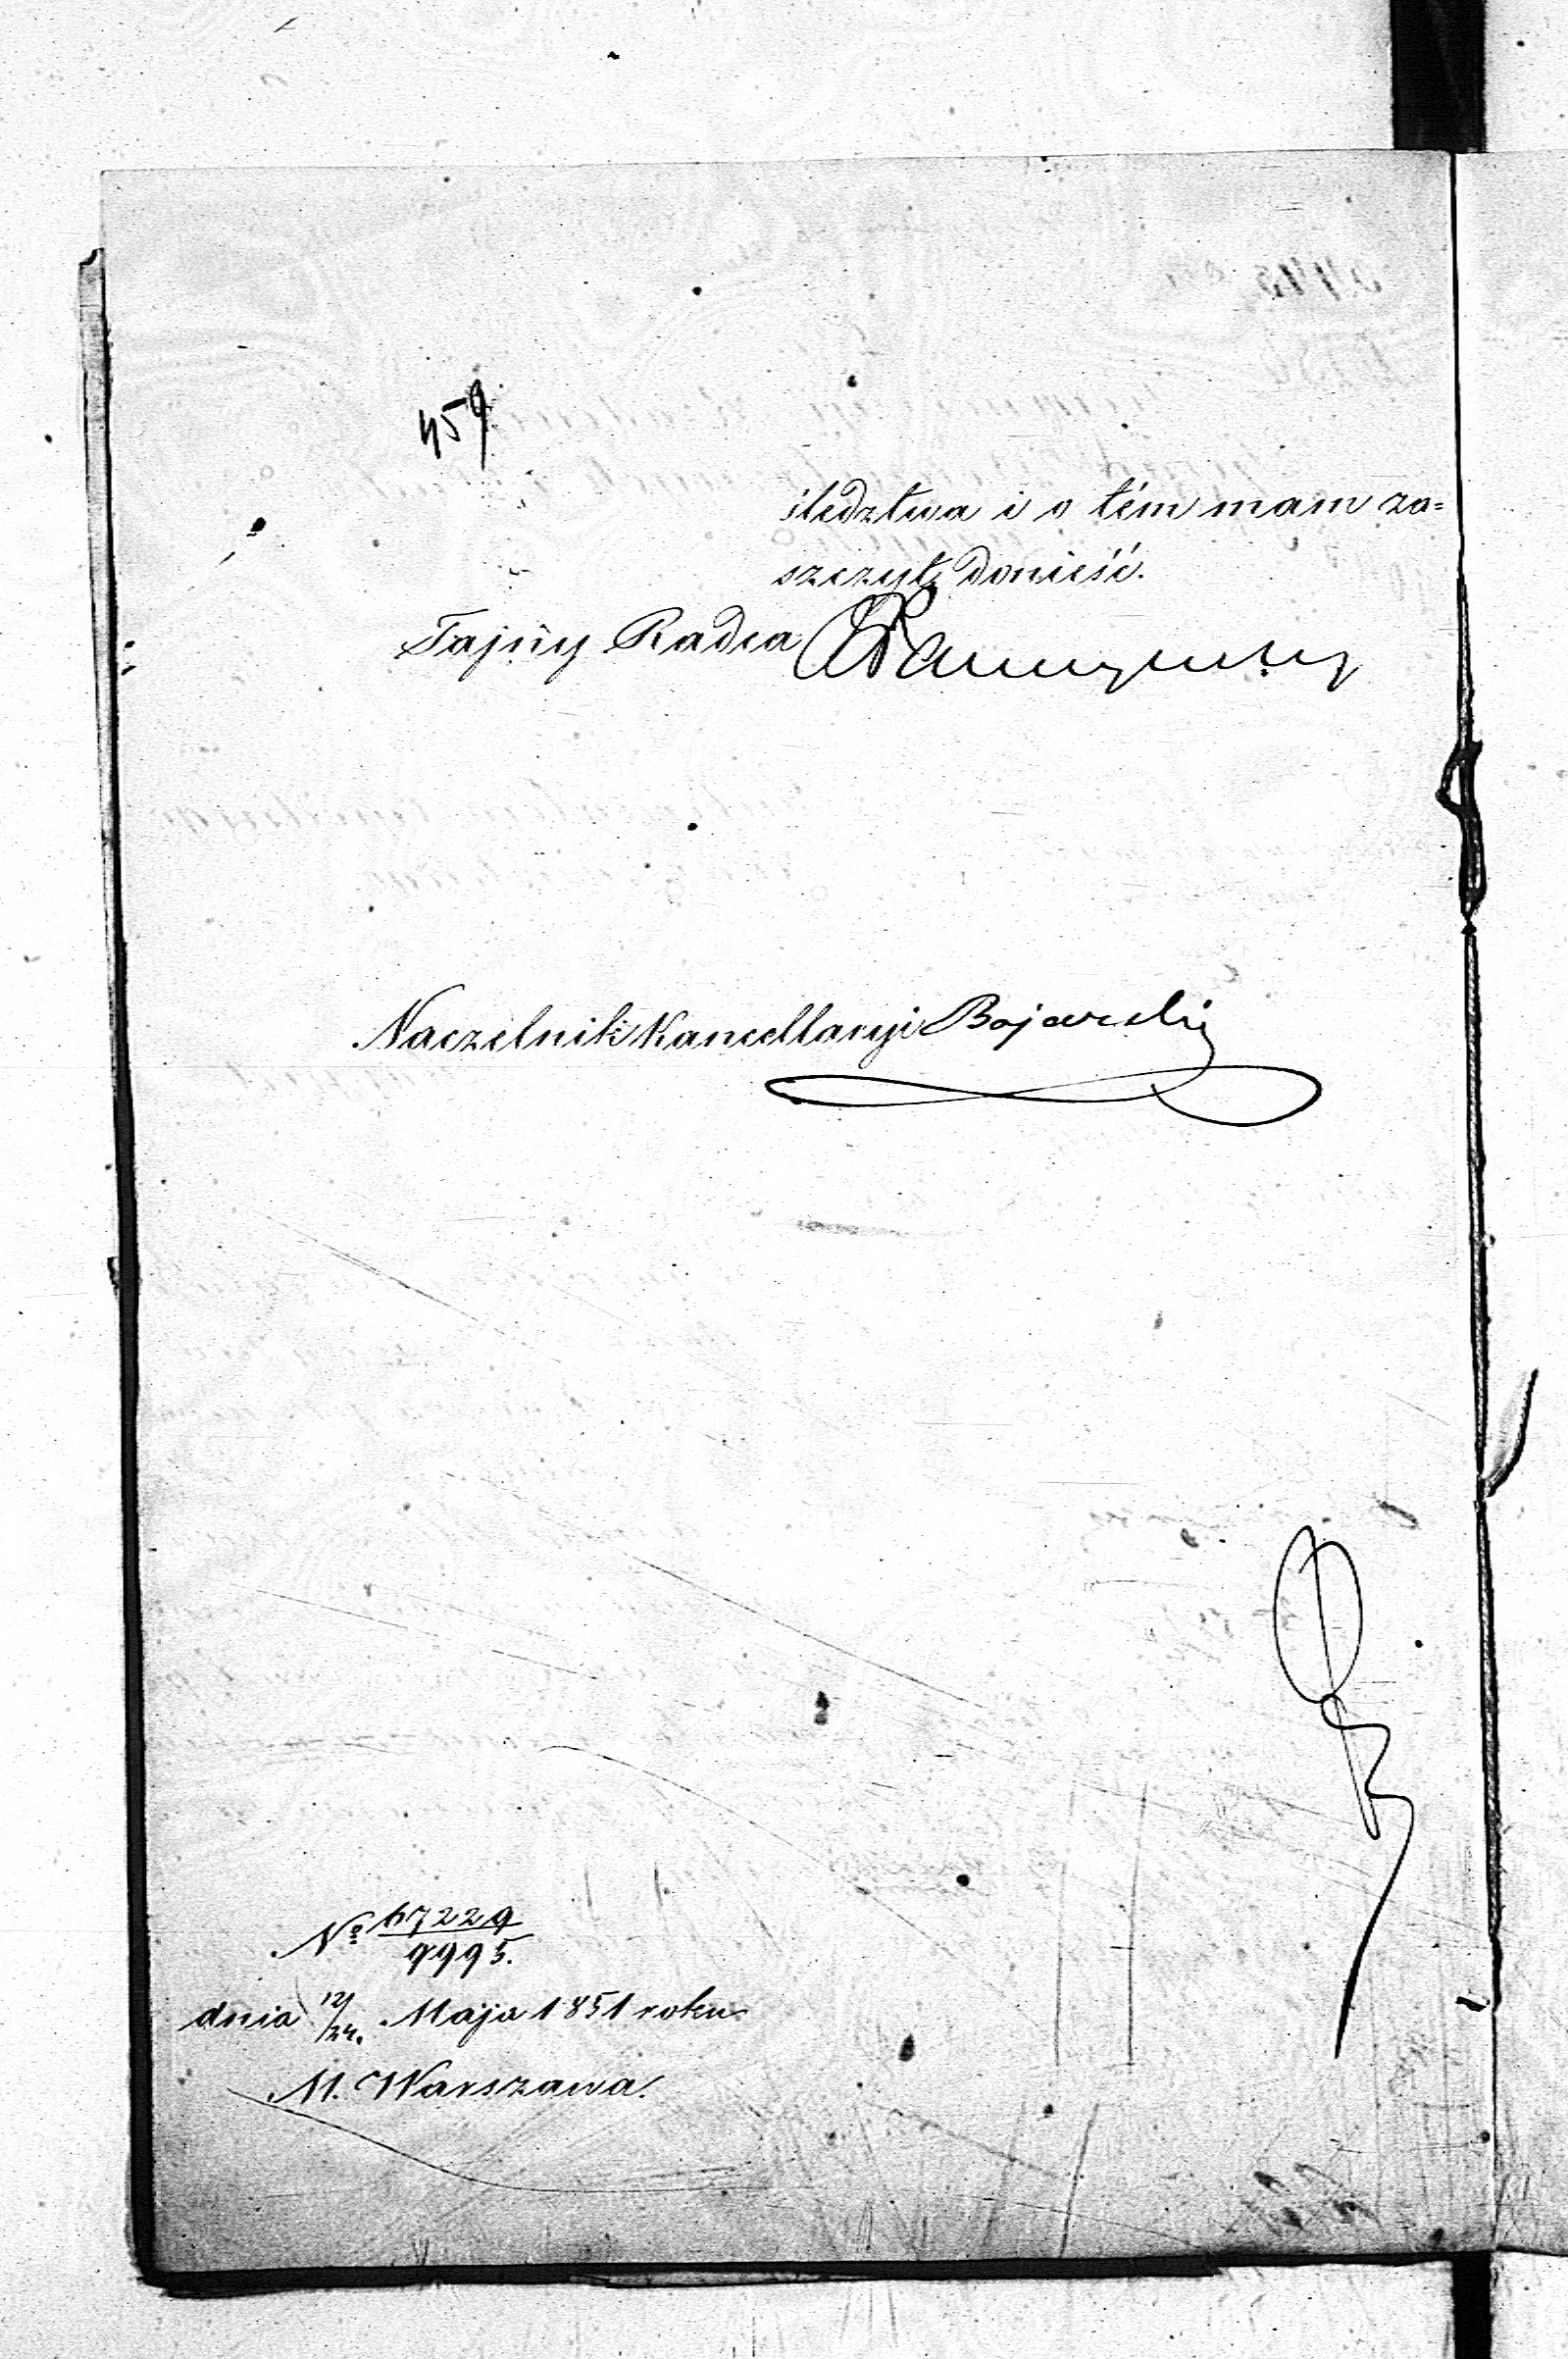 459
śledztwa i o tém mam za=
szczyt donieść.
Tajny Radca
Naczelnik Kancellaryi Bojarski
№ 67229
9995.
dnia 12/24. Maja 1851 roku
M. Warszawa.